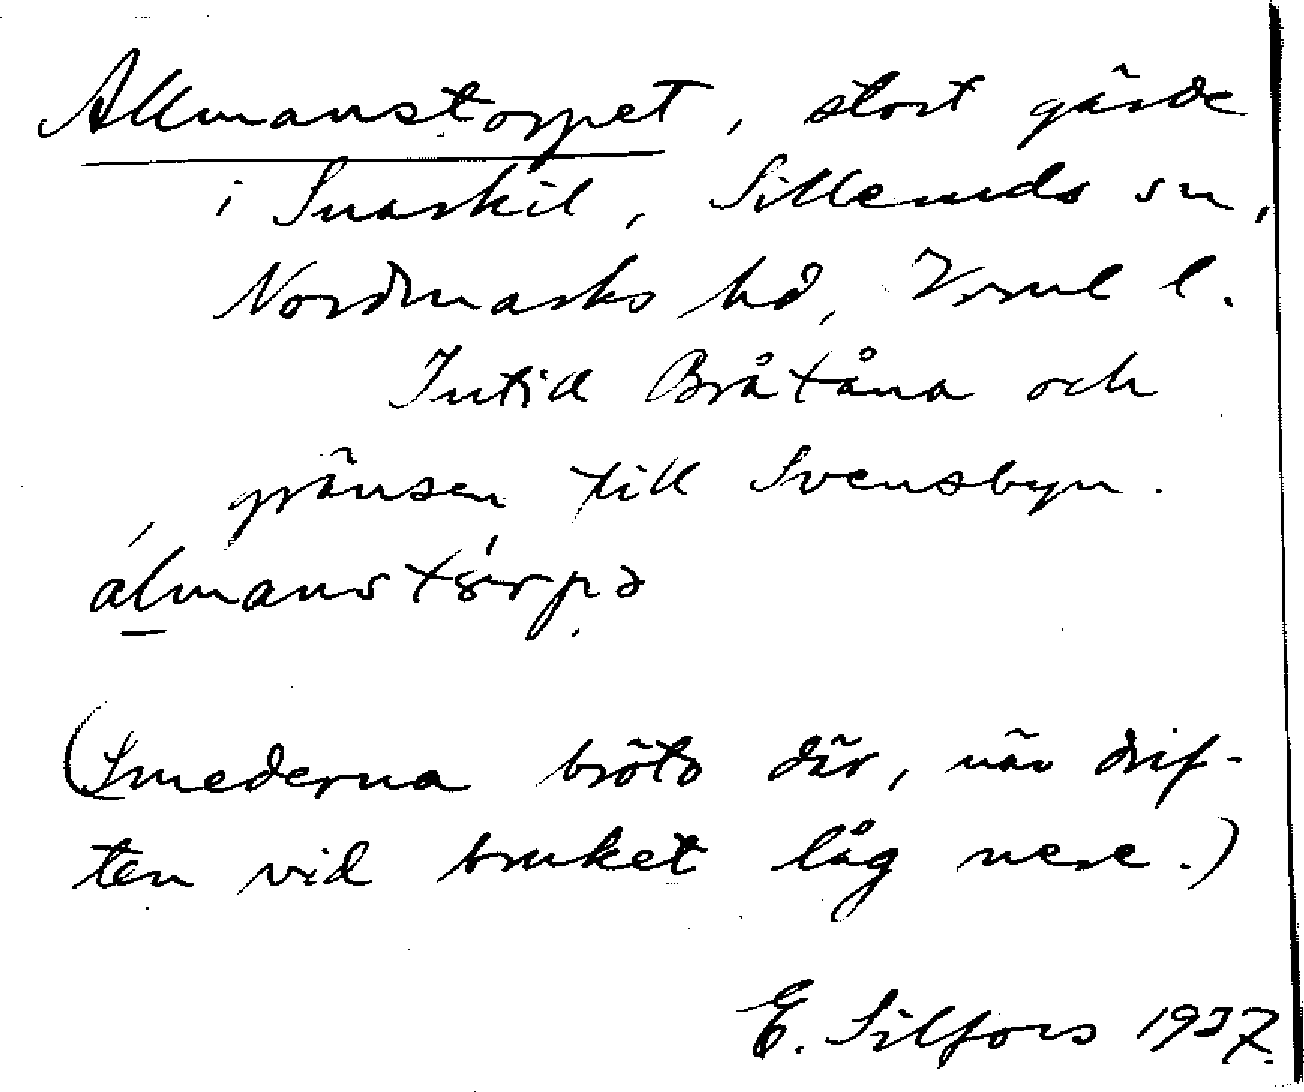 Allmanstorpet, stort gärde
i Snarkil, Silleruds sn,
Nordmarks hd, Vrml l.
Intill Bråtåna och
gränsen till Svensbyn.
(Smederna bröto där, när drif-
ten vid bruket låg nere.)
E. Silfors 1937.